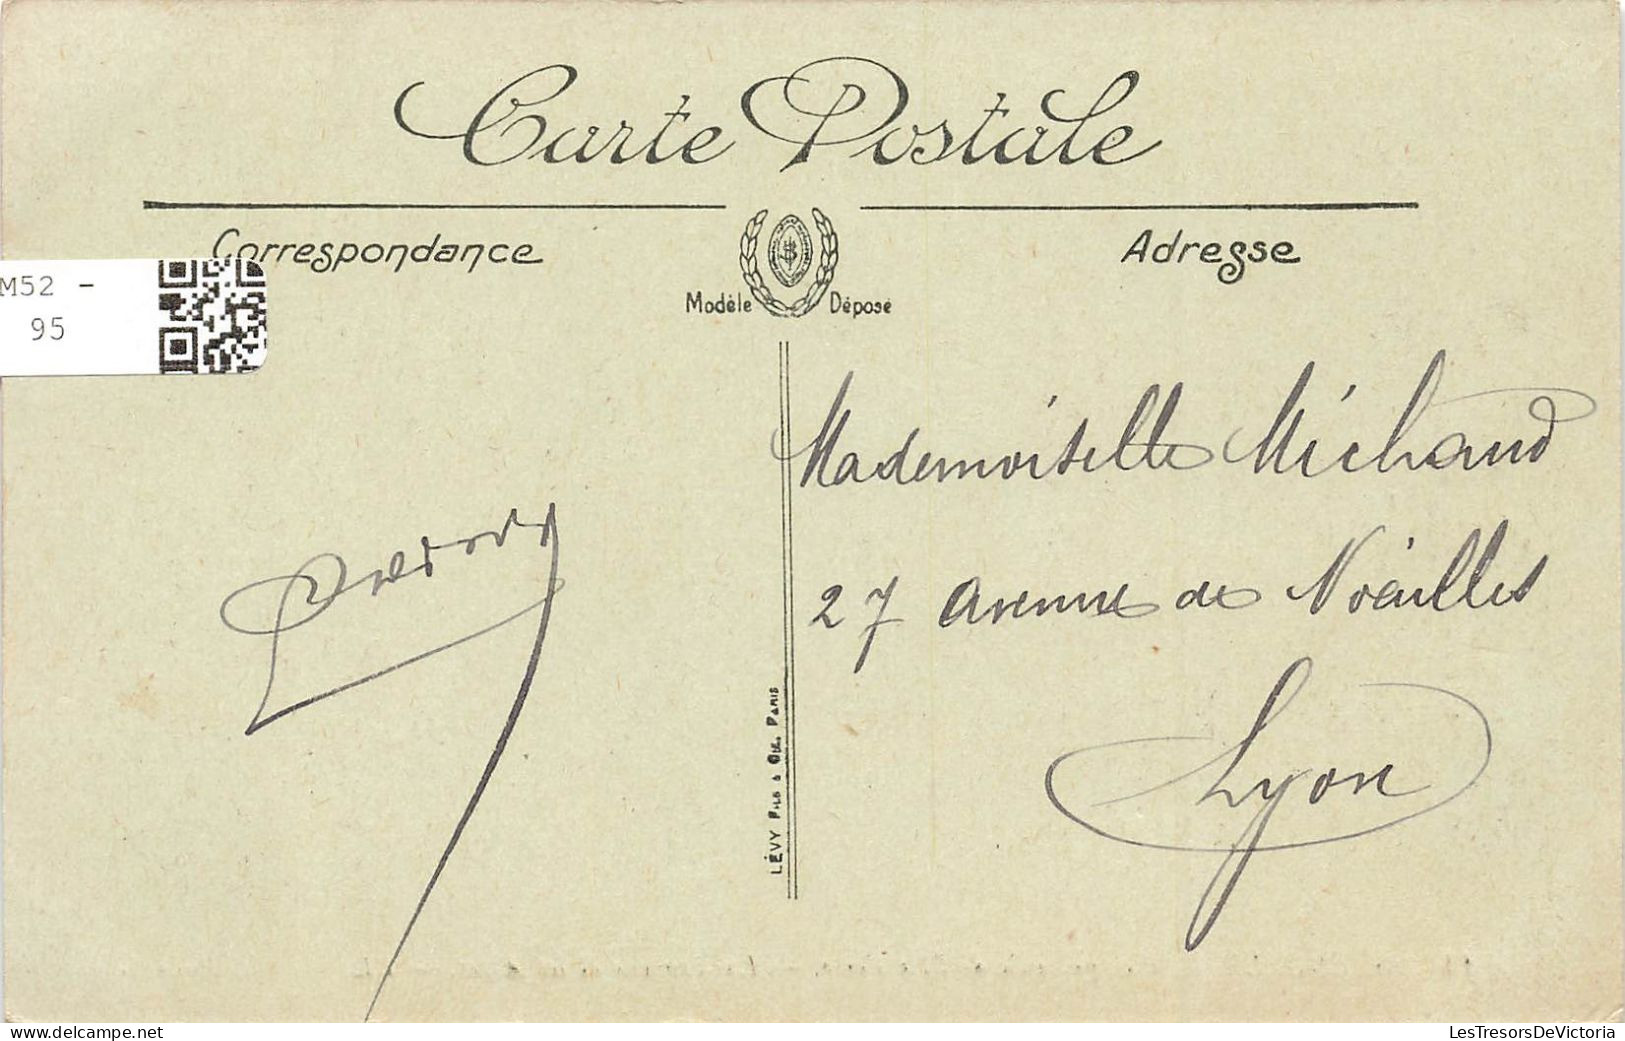 Carte Postale
Correspondance
Adresse
Modèle Déposé
M52 -
95
Mademoiselle Michaud
27 avenue de Noailles
Lyon
LÉVY FILS & CIE. PARIS
LesTresorsDeVictoria
delcampe.net